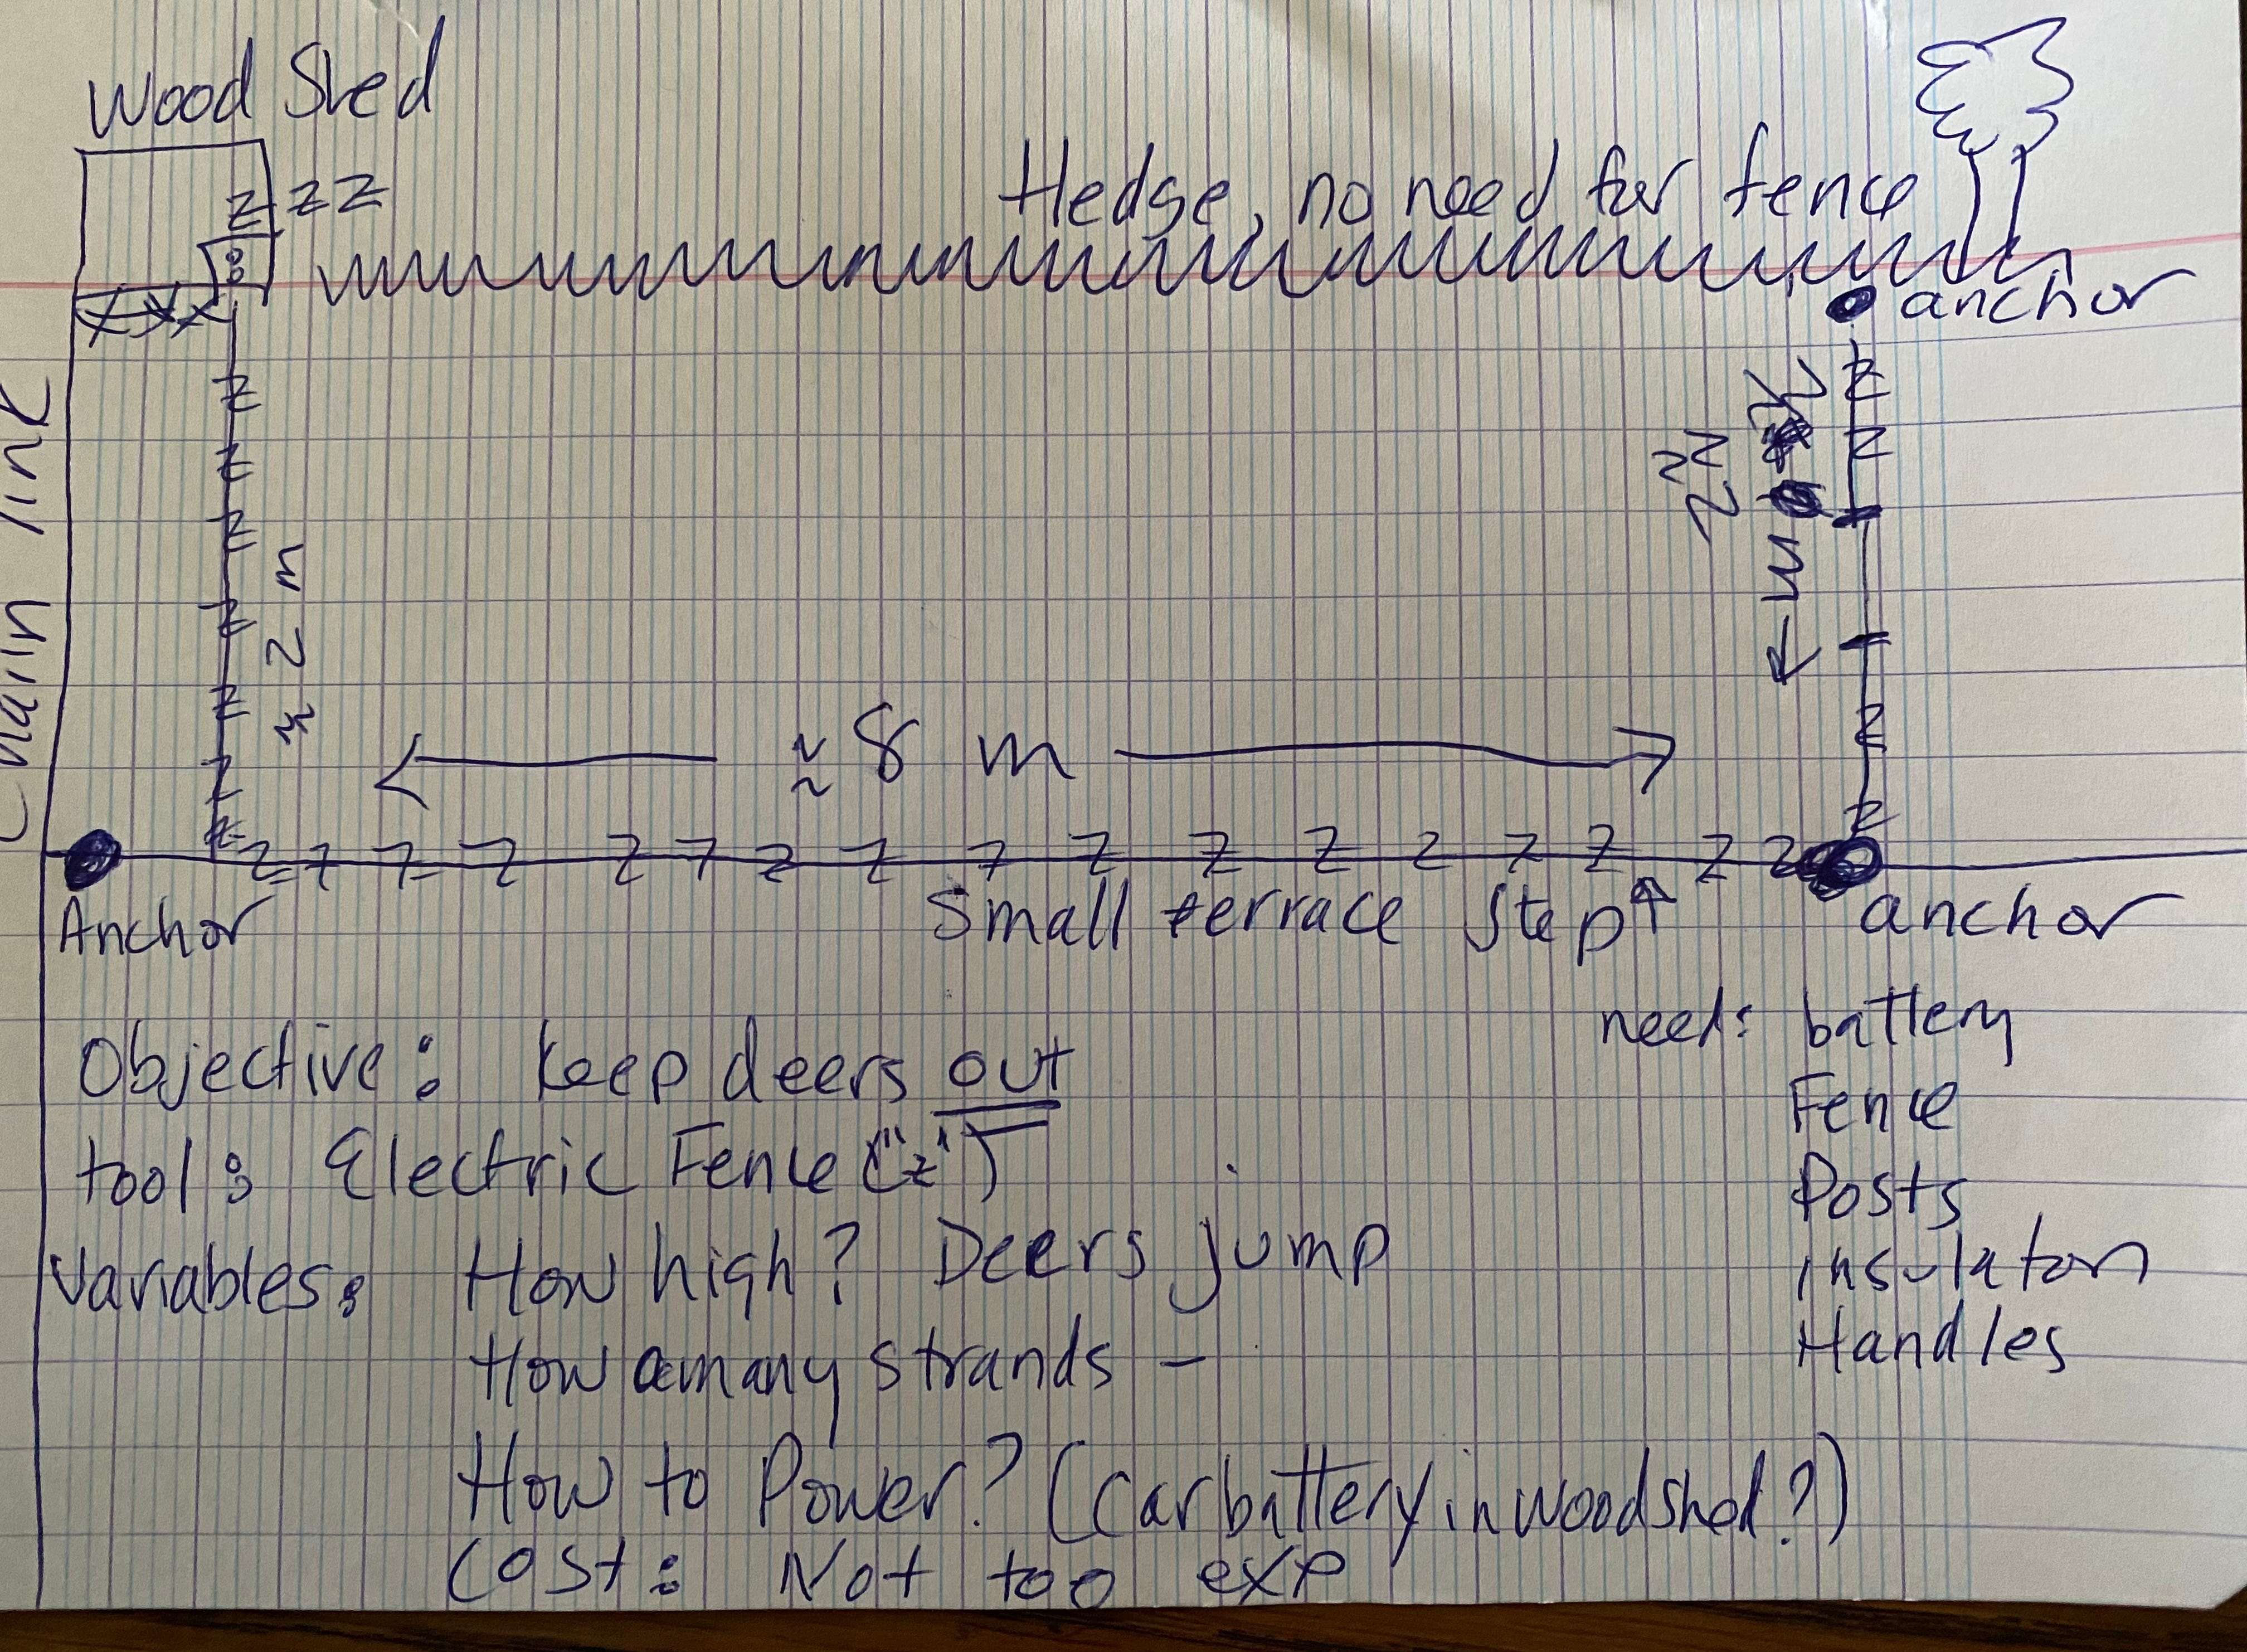 Wood Shed
z z z
Hedge, no need for fence
anchor
xxx
z
z
z
z
z
z
z
z
z
Chain link
≈ 2 m
≈ 2
m
z
z
≈ 8 m
z z z z z z z z z z z z z z z z z
Anchor
Small terrace step
anchor
need: battery
Fence
Posts
insulators
Handles
Objective: Keep deers out
tool: Electric Fence ("z")
Variables: How high? Deers jump
How many strands -
How to Power? (Car battery in wood shed?)
Cost: Not too exp